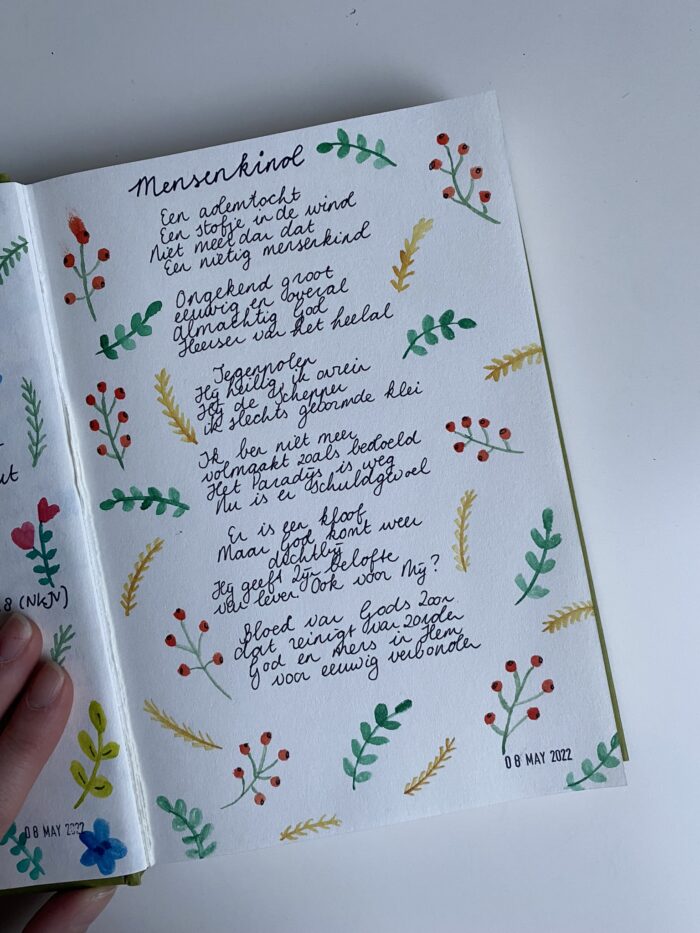 Mensenkind
Een ademtocht
Een stofje in de wind
Niet meer dan dat
Een nietig mensenkind
Ongekend groot
eeuwig en overal
Almachtig God
Heerser van het heelal
Tegenpolen
Hij heilig, ik onrein
Hij de Schepper
ik slechts gevormde klei
Ik ben niet meer
volmaakt zoals bedoeld
Het Paradijs is weg
Nu is er schuldgevoel
Er is een kloof
Maar God komt weer
dichtbij
Hij geeft Zijn belofte
van leven Ook voor Mij?
Bloed van Gods Zoon
dat reinigt van zonden
God en mens in Hem
voor eeuwig verbonden
08 MAY 2022
ut
8 (NKJV)
08 MAY 2022